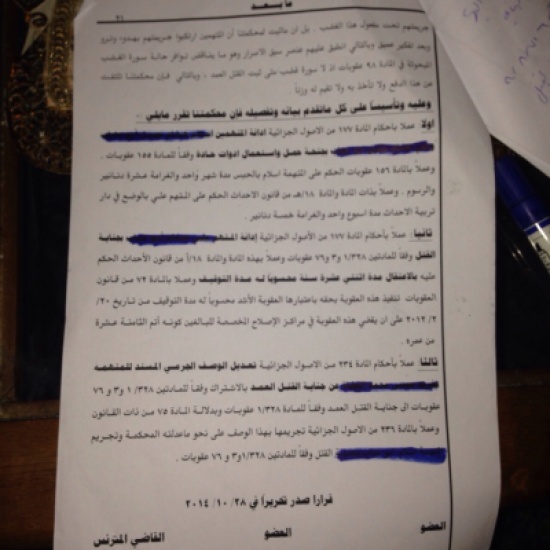 ما بعد
٢١
جريمتهم تحت مفعول هذا الغضب . بل ان ماثبت لمحكمتنا أن المتهمين ارتكبوا جريمتهم بهدوء وتروٍ
وبعد تفكير عميق وبالتالي انطبق عليهم عنصر سبق الاصرار وهو ما يناقض توافر حالة سورة الغضب
المبحوثة في المادة ٩٨ عقوبات اذ لا سورة غضب على نيت القتل العمد ، وبالتالي فإن محكمتنا تلتفت
عن هذا الدفع ولا تأخذ به ولا تقيم له وزناً .
وعليه وتأسيساً على كل ماتقدم بيانه وتفصيله فإن محكمتنا تقرر مايلي :-
اولا : عملاً بأحكام المادة ١٧٧ من الأصول الجزائية ادانة المتهمين
بجنحة حمل واستعمال ادوات حادة وفقاً للمادة ١٥٥ عقوبات .
وعملاً بالمادة ١٥٦ عقوبات الحكم على المتهمة اسلام بالحبس مدة شهر واحد والغرامة عشرة دنانير
والرسوم . وعملاً بذات المادة والمادة ١٨/هـ من قانون الاحداث الحكم على المتهم علي بالوضع في دار
تربية الاحداث مدة اسبوع واحد والغرامة خمسة دنانير .
ثانيا : عملاً بأحكام المادة ١٧٧ من الأصول الجزائية إدانة المتهم بجناية
القتل وفقاً للمادتين ١/٣٢٨ و٣ و٧٦ عقوبات وعملا بهذه المادة والمادة ١٨/أ من قانون الأحداث الحكم
عليه بالاعتقال مدة اثنتي عشرة سنة محسوباً له مدة التوقيف وعملا بالمادة ٧٢ من قانون
العقوبات تنفيذ هذه العقوبة بحقه باعتبارها العقوبة الأشد محسوباً له مدة التوقيف من تاريخ ٢٠/
٢/ ٢٠١٢ على ان يقضي هذه العقوبة في مراكز الإصلاح المخصصة للبالغين كونه أتم الثامنة عشرة
من عمره .
ثالثا : عملاً بأحكام المادة ٢٣٤ من الأصول الجزائية تعديل الوصف الجرمي المسند للمتهمه
من جناية القتل العمد بالاشتراك وفقاً للمادتين ٣٢٨/ ١ و٣ و ٧٦
عقوبات الى جناية القتل العمد وفقاً للمادة ١/٣٢٨ عقوبات وبدلالة المادة ٧٥ من ذات القانون
وعملاً بالمادة ٢٣٦ من الأصول الجزائية تجريمها بهذا الوصف على نحو ماعدلته المحكمة وتجريم
القتل وفقاً للمادتين ١/٣٢٨ و٣ و ٧٦ عقوبات .
قرارا صدر تحريراً في ٢٨ / ١٠ / ٢٠١٤
العضو العضو القاضي المترئس